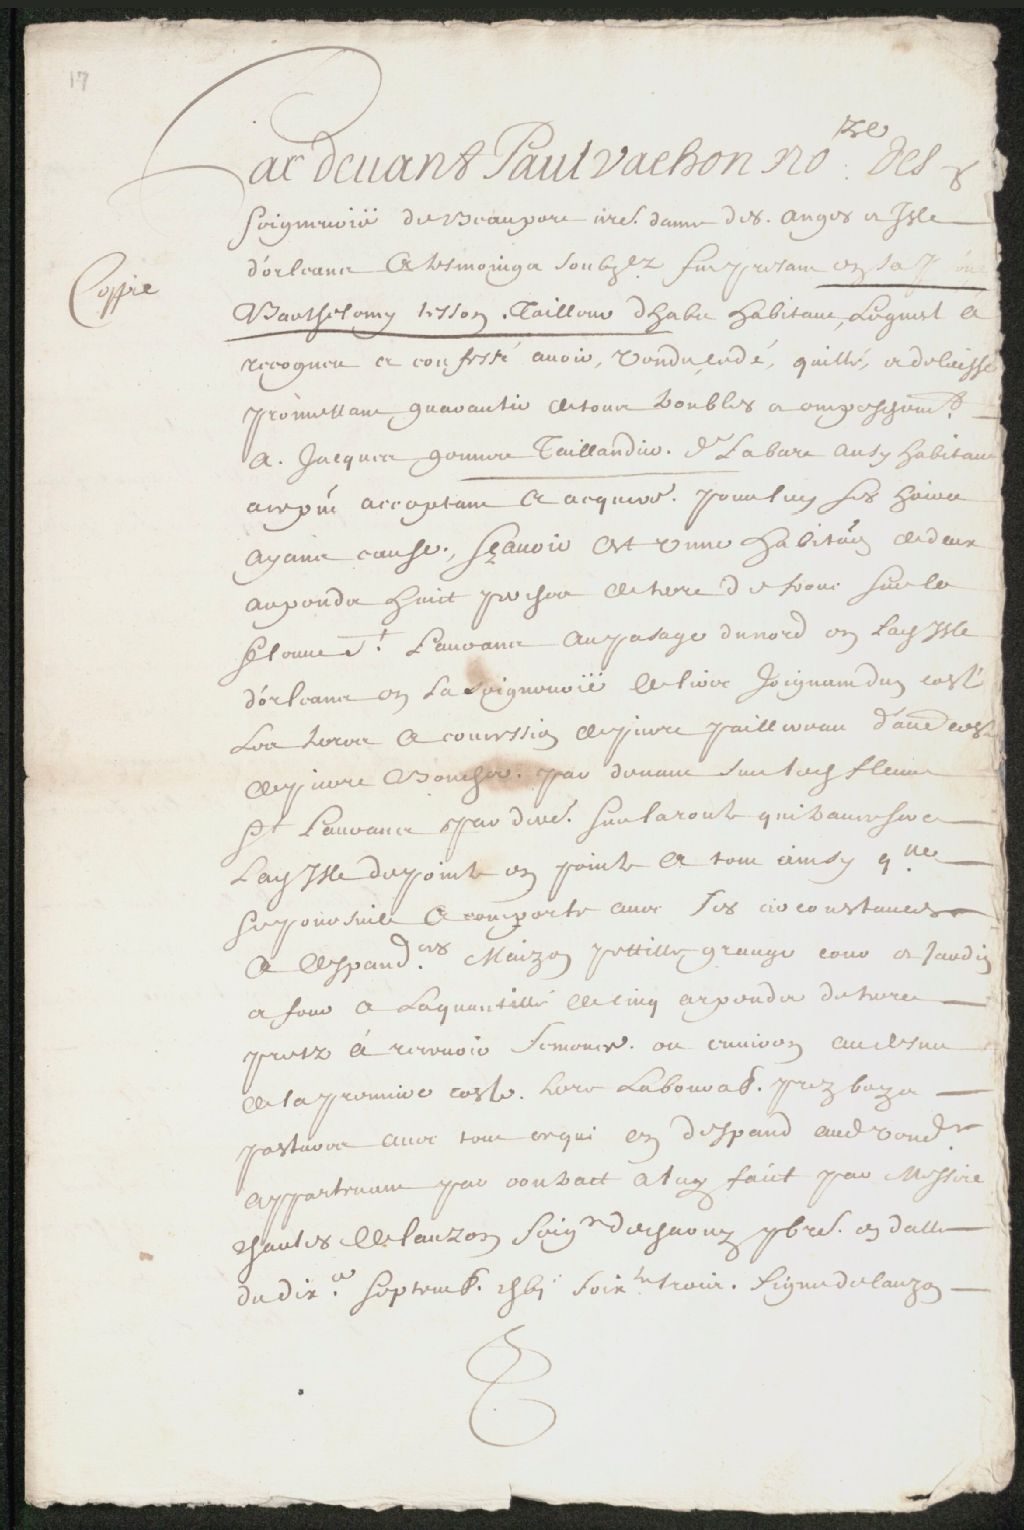 17
Par devant Paul vachon No.re des
seigneurië de Beaupore nre. dame des. anges et Isle
Coppie
d'orleans Et tesmoings soubz.ez fut present en sa p
Barthelemy tesson. Tailleur d'habis habitant, Lequel à
recognu et confessé avoir, vendu, cedé, quitté, et delaissé
promettant guarantir de tous troubles et empeschem.ts
A. Jacques Taillandier. d. La bare ausy habitant
a ce p̃nt acceptant Et acquereur. pour luy ses hoirs
ayans cause., sçavoir Est Unne habita͠on de deux
arpendz huict perches de terre de front sur le
fleuve S.t Laurans au pasage du nord en lad Isle
d'orleans en La seigneurië de lirec Joignant d'un costé
Les terres Et concession de pierre d'aue cost
de pierre Boucher. par devant sur led fleuve
S.t Laurans & par derr. sur la route qui traversera
Lad Isle de pointe en pointe Et tout ainsy q.ue
se poursuit Et comporte avec ses circonstances
Et despand.ces Maizon pettitte grange cour et Jardin
et four Et La quantitté de cinq arpendz de terre
prest à recevoir semence. ou environ au desus
de la premiere coste. terre Labourab. prez boys
pasture avec tout ce qui en despand aud vend.r
appartenant par contract a luy faict par Messire
charles de lauzon seig.r de charny pbre. en datte
du dix.e septemb. soix.te trois. signe de lauzon